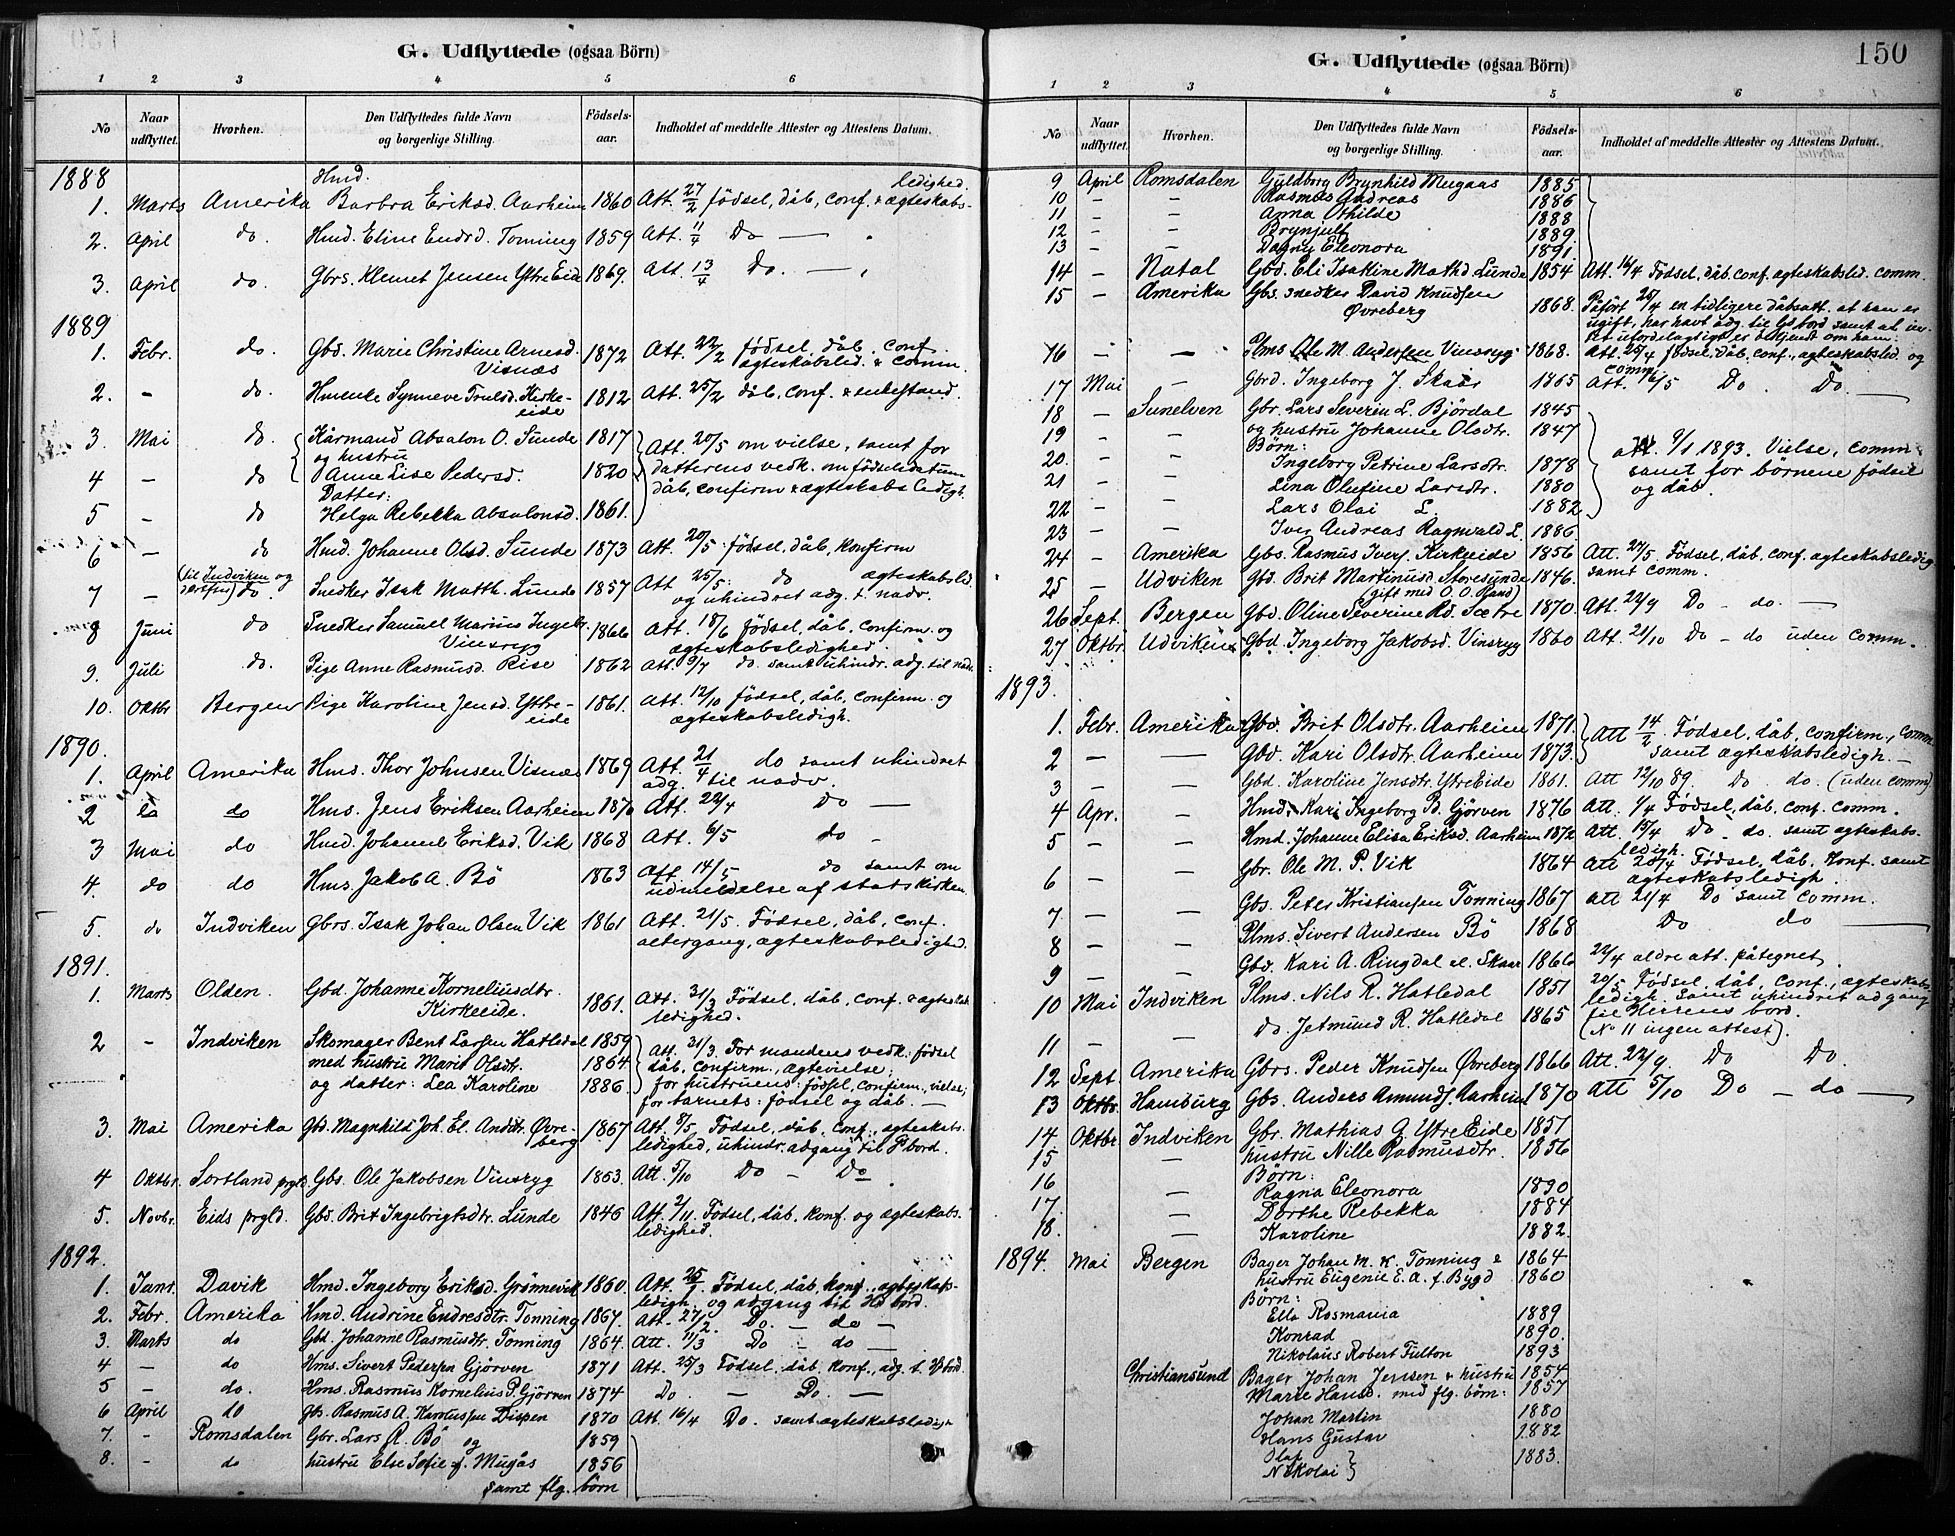 G. Udflyttede (ogsaa Börn)
1 2 3 4 5 6
No
Naar udflyttet.
Hvorhen.
Den Udflyttedes fulde Navn og borgerlige Stilling.
Födsels-aar.
Indholdet af meddelte Attester og Attestens Datum.
1888
Hmd. ledighed.
1. Marts Amerika Barbra Eriksd. Aarheim 1860 Att. 27/2 födsel, dåb, conf. & ægteskabs-
2. April do. Hmd. Eline Endrd. Tonning 1859 Att. 11/4 Do —
3. April do. Gbrs. Klemet Jensen Ytre Eide 1869. Att. 13/4 Do. —
1889
1. Febr. do. Gbd. Marie Christine Arnesd. 1872 Att. 22/2 födsel, dåb, conf.
Visnæs ægteskabsled. & comm.
2. - do. Hmenke Synneve Trulsd. Kirke- 1812 Att. 25/2 dåb, conf. & enkestand.
eide
3. Mai do. Kårmand Absalon O. Sunde 1817 Att. 20/5 om vielse, samt for
og hustru
4 - do Anne Lise Pedersd. 1820 datterens vedk. om födselsdatum
Datter: dåb, confirm & ægteskabs ledigh.
5 - do Helga Rebekka Absalonsd. 1861.
6 - do Hmd. Johanne Olsd. Sunde 1873 Att. 20/5 födsel, dåb, konfirm
(til Indviken og derfra) ægteskabsled.
7 - do. Snedker Isak Matth. Lunde 1857 Att 25/5: do
og uhindret adg. t. nadv.
8 Juni do Snedker Samuel Marius Ingebr. 1866 Att. 18/6 födsel, dåb, confirm. og
Vinsryg ægteskabsledighed.
9. Juli do. Pige Anne Rasmusd. Rise 1862 Att. 9/7 do. samt uhindr. adg. til nadv.
10. Oktbr Bergen Pige Karoline Jensd. Yttre- 1861. Att. 12/10 födsel, dåb, confirm. og
eide ægteskabsledigh.
1890.
1. April Amerika Hms. Thor Johnsen Visnæs 1869 Att. 21/4 do samt uhindret
adg. til nadv.
2 do do Hms. Jens Eriksen Aarheim 1870 Att. 22/4 Do —
3 Mai do Hmd. Johanne Eriksd. Vik 1868 Att. 6/5 do -
4. do do Hms. Jakob A. Bö 1863 Att. 14/5 do samt om
udmeldelse af statskirken.
5. do Indviken Gbrs. Isak Johan Olsen Vik 1861 Att. 21/5. Födsel, dåb, conf.
altergang, ægteskabsledighed.
1891.
1. Marts Olden. Gbd. Johanne Korneliusdtr. 1861. Att. 31/3 Födsel, dåb, conf. & ægtesk.
Kirkeeide. ledighed.
2 - Indviken Skomager Bent Larsen Hatledal 1859 Att. 21/3. For mandens vedk: födsel
med hustru Marit Olsdtr. 1864 dåb, confirm., ægtevielse;
og datter: Lea Karoline 1886. for hustruens: födsel, confirm, vielse;
for barnets: födsel og dåb. —
3. Mai Amerika Gbd. Magnhild Joh. El. Anddtr. Övre- 1867 Att. 8/5, Födsel, dåb, conf., ægteskabs-
berg ledighed, uhindr. adgang til H bord.
4 Oktbr. Sortland prgld. Gbs. Ole Jakobsen Vinsryg 1863. Att. 5/10 Do - Do
5. Novbr. Eids prgld. Gbd. Brit Ingebrigtsdtr. Lunde 1846 Att. 2/11. Födsel, dåb, konf. og ægteskabs.
ledighed.
1892.
1. Janr. Davik Hmd. Ingeborg Eriksd. Grönnevik 1860. Att. 25/1. Födsel, dåb, konf., ægteskabs-
ledigh. og adgang til Hs bord.
2. Febr. Amerika Hmd. Andrine Endresdtr. Tonning 1867. Att. 27/2. Do. — do —
3. Marts do Gbd. Johanne Rasmusdtr. Tonning 1864. Att. 11/3 Do — do —
4 — do Hms. Sivert Pedersen Gjörven 1871 Att. 25/3 Födsel, dåb, konf., adg. t. H bord.
5 - do. Hms. Rasmus Kornelius P. Gjörven 1874 Do. — Do. —
6 April do Gbs. Rasmus A. Karolussen Dispen 1870 Att. 16/4 Do. samt ægteskabsledigh
7. - Romsdalen Gbr. Lars R. Bö og 1859
8. - do hustru Else Sofie f. Mugås 1856
samt flg. börn
G. Udflyttede (ogsaa Börn) 150
1 2 3 4 5 6
No
Naar udflyttet.
Hvorhen.
Den Udflyttedes fulde Navn og borgerlige Stilling.
Födsels-aar.
Indholdet af meddelte Attester og Attestens Datum.
9 April Romsdalen Guldborg Brynhild Mugaas 1885
10 - - Rasmus Andreas 1886
11 - - Anna Othilde 1888
12 - - Brynjulf 1889
13 - - Dagny Eleonora 1891.
14 - Natal Gbd. Eli Isakine Mathd Lunde 1854 Att. 16/4 Födsel, dåb, conf. ægteskabsled. comm.
15 - Amerika Gbs. snedker David Knudsen
Övreberg 1868. Påfört 25/4 en tidligere dåbsatt. at han er
ugift, har havt adg. til Gds bord samt at in-
tet ufordelagtigt er bekjendt om ham.
16 - — Plms Ole M. Andersen Vinsryg 1868. Att. 25/4 födsel, dåb, conf., ægteskabsled. og
comm.
17 Mai — Gbrd. Ingeborg J. Skaar 1865 Att. 16/5 Do. Do. —
18 - Sunelven Gbr. Lars Severin L. Björdal 1845
19 - - og hustru Johanne Olsdtr. 1847 att. 9/1 1893. Vielse, comm.
Börn:
20. - - Ingeborg Petrine Larsdtr. 1878 samt for börnene födsel
21 - - Lina Olufine Larsdtr. 1880 og dåb.
22 - - Lars Olai L. 1882
23 - — Iver Andreas Ragnvald L. 1886
24 - Amerika Gbs. Rasmus Ivers. Kirkeeide 1856 Att. 24/5. Födsel, dåb, conf. ægteskabsledig.
samt comm.
25 - Udviken Gbd. Brit Martinusd. Storesunde 1846.
(gift med O. O. Rand)
26 Sept. Bergen Gbd. Oline Severine Rd. Sætre 1870. Att. 22/9 Do - do. —
27 Oktbr. Udviken Gbd. Ingeborg Jakobsd. Vinsryg 1860 Att. 21/10 Do - do uden comm.
1893.
1. Febr. Amerika Gbd. Brit Olsdtr. Aarheim 1871. Att 14/2. Födsel, dåb, confirm., comm
2 — — Gbd. Kari Olsdtr. Aarheim 1873. samt ægteskabsledigh. —
3 — — Gbd. Karoline Jensdtr. Ytre Eide 1861. Att 12/10 89 Do do. (uden comm)
4 Apr. — Hmd. Kari Ingeborg Pd. Gjörven 1876 Att. 1/4 Födsel, dåb, conf. comm.
5 — — Hmd. Johanne Elisa Eriksd. Aarheim 1872 Att. 15/4 Do - do. samt ægteskabs-
ledigh.
6 — — Gbr. Ole M. P. Vik 1864 Att 20/4 Födsel, dåb, konf. samt
ægteskabsledigh.
7 — — Gbs. Peter Kristiansen Tonning 1867 Att 21/4 Do samt comm.
8 — — Plms. Sivert Andersen Bö 1868 Do do —
9 — — Gbd. Kari A. Ringdal el. Skaar 1866 22/4 ældre att. påtegnet.
10 Mai Indviken Plms. Nils R. Hatledal 1851 20/5 Födsel, dåb, conf., ægteskabs-
ledigh. samt uhindret adgang
11 — — do. Jetmund R. Hatledal 1865 til Herrens bord.
(No 11 ingen attest).
12 Sept. Amerika Gbrs. Peder Knudsen Övreberg 1866 Att. 22/9. Do Do.
13 Oktbr. Hamburg Gbs. Anders Amunds. Aarheim 1870 Att 5/10 Do — do —
14 Oktbr Indviken Gbr. Mathias G. Ytre Eide 1851
15 — hustru Nille Rasmusdtr. 1856
Börn:
16 — Ragna Eleonora 1890
17 — Dorthe Rebekka 1884
18. — Karoline 1882.
1894. Mai Bergen Bager Johan M. K. Tonning & 1864
hustru Eugenie E. A. f. Bygd 1860
Börn:
Ella Rosmania 1889
Konrad 1890.
Nikolaus Robert Fulton 1893
Christiansund Bager Johan Jensen & hustru 1854
Marie Hans. med flg. börn: 1857
Johan Martin 1880
Hans Gustav 1882
Olaf
Nikolai } 1883.